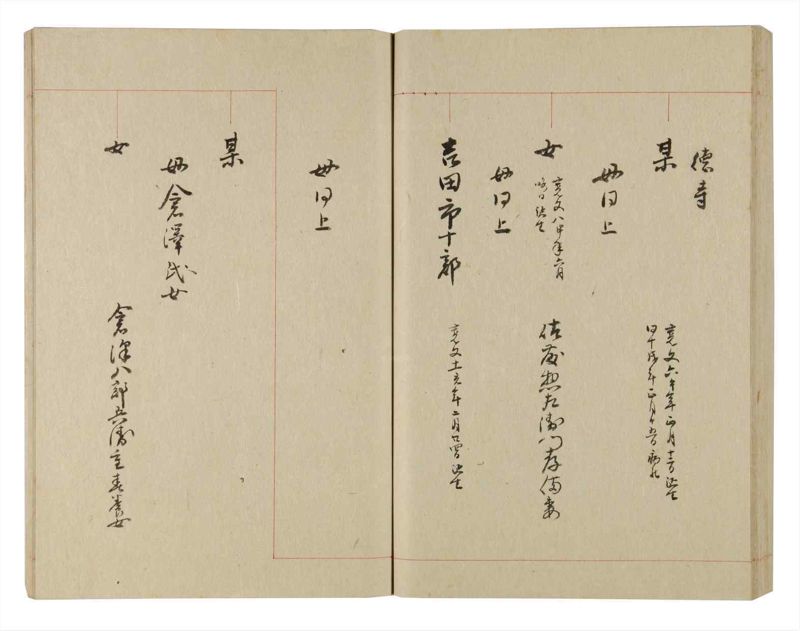 德寺
某
寛文六午年正月十一日誕生
同十戌年正月十五日病死
母同上
女
寛文八申年六月
晦日誕生
佐藤惣左衛門存備妻
母同上
吉田市十郎
寛文十一亥年二月廿四日誕生
母同上
某
母倉澤氏女
女
倉澤八郎兵衛重春養女